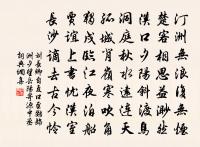 汀洲無浪復無烟
楚客相思益渺然
漢口夕陽斜渡鳥
洞庭秋水遠連天
孤城背嶺寒吹角
獨戍臨江夜泊船
賈誼上書憂漢室
長沙謫去古今憐
劉長卿自夏口至鸚鵡
洲夕望岳陽寄源中丞
詞典網書